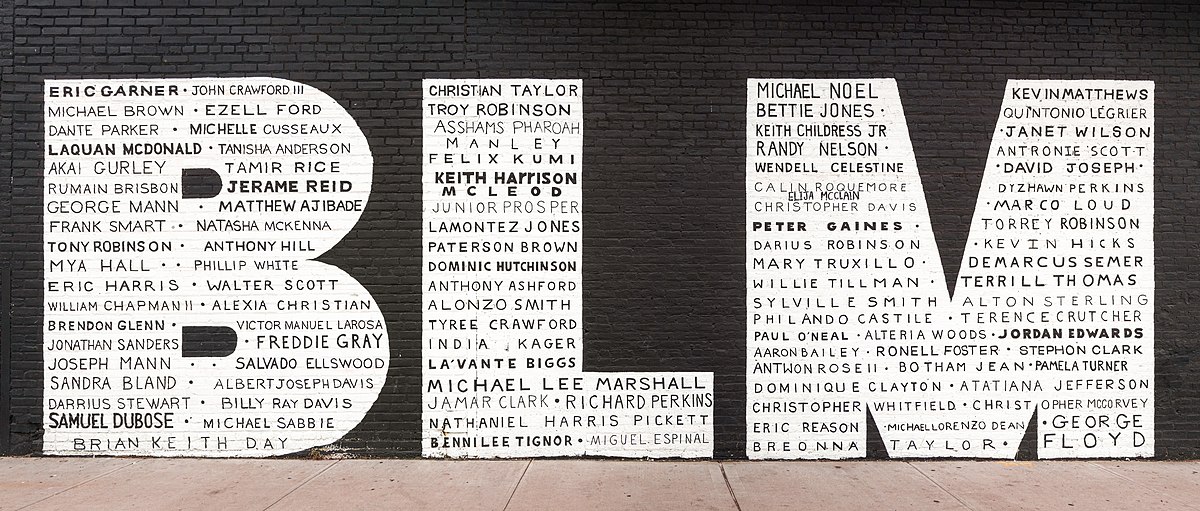 BLM
ERIC GARNER · JOHN CRAWFORD III
MICHAEL BROWN · EZELL FORD
DANTE PARKER · MICHELLE CUSSEAUX
LAQUAN MCDONALD · TANISHA ANDERSON
AKAI GURLEY · TAMIR RICE
RUMAIN BRISBON · JERAME REID
GEORGE MANN · MATTHEW AJIBADE
FRANK SMART · NATASHA MCKENNA
TONY ROBINSON · ANTHONY HILL
MYA HALL · · PHILLIP WHITE
ERIC HARRIS · WALTER SCOTT
WILLIAM CHAPMAN II · ALEXIA CHRISTIAN
BRENDON GLENN · VICTOR MANUEL LAROSA
JONATHAN SANDERS · FREDDIE GRAY
JOSEPH MANN · · SALVADO ELLSWOOD
SANDRA BLAND · ALBERT JOSEPH DAVIS
DARRIUS STEWART · BILLY RAY DAVIS
SAMUEL DUBOSE · MICHAEL SABBIE
BRIAN KEITH DAY
CHRISTIAN TAYLOR
TROY ROBINSON
ASSHAMS PHAROAH
MANLEY
FELIX KUMI
KEITH HARRISON
MCLEOD
JUNIOR PROSPER
LAMONTEZ JONES
PATERSON BROWN
DOMINIC HUTCHINSON
ANTHONY ASHFORD
ALONZO SMITH
TYREE CRAWFORD
INDIA KAGER
LA'VANTE BIGGS
MICHAEL LEE MARSHALL
JAMAR CLARK · RICHARD PERKINS
NATHANIEL HARRIS PICKETT
BENNI LEE TIGNOR · MIGUEL ESPINAL
MICHAEL NOEL KEVIN MATTHEWS
BETTIE JONES · QUINTONIO LÉGRIER
KEITH CHILDRESS JR · JANET WILSON
RANDY NELSON · ANTRONIE SCOTT
WENDELL CELESTINE · DAVID JOSEPH ·
CALIN ROQUEMORE DYZHAWN PERKINS
ELIJA MCCLAIN
CHRISTOPHER DAVIS · MARCO LOUD
PETER GAINES · TORREY ROBINSON
DARIUS ROBINSON · KEVIN HICKS
MARY TRUXILLO · DEMARCUS SEMER
WILLIE TILLMAN · TERRILL THOMAS
SYLVILLE SMITH ALTON STERLING
PHILANDO CASTILE · TERENCE CRUTCHER
PAUL O'NEAL · ALTERIA WOODS · JORDAN EDWARDS
AARON BAILEY · RONELL FOSTER · STEPHON CLARK
ANTWON ROSE II · BOTHAM JEAN · PAMELA TURNER
DOMINIQUE CLAYTON · ATATIANA JEFFERSON
CHRISTOPHER WHITFIELD · CHRISTOPHER MCCORVEY
ERIC REASON · MICHAEL LORENZO DEAN · GEORGE
BREONNA TAYLOR · FLOYD